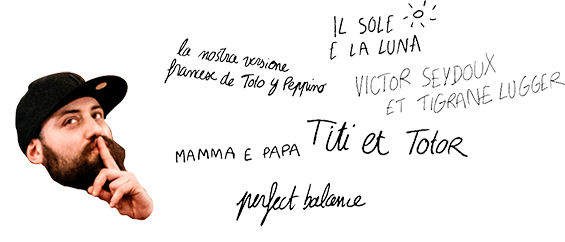 IL SOLE
E LA LUNA
la nostra versione
francese de Toto y Peppino
VICTOR SEYDOUX
ET TIGRANE LUGGER
MAMMA E PAPA
Titi et Totor
perfect balance